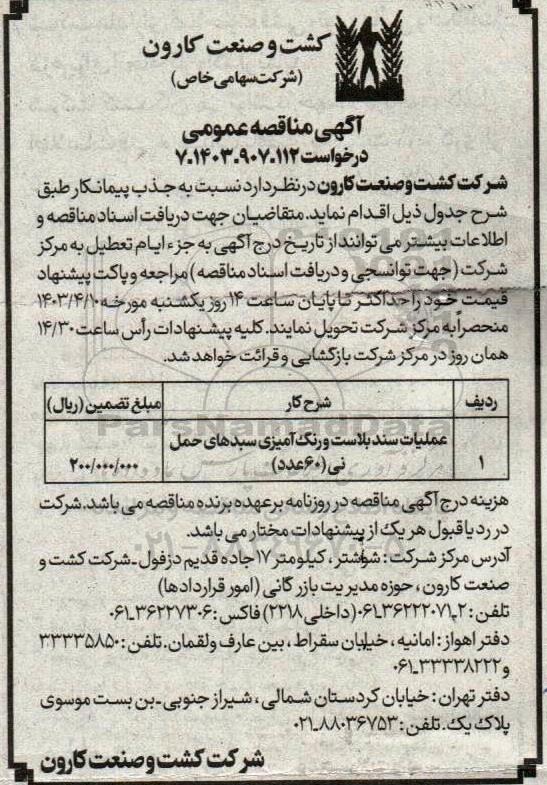 کشت و صنعت کارون
(شرکت سهامی خاص)
آگهی مناقصه عمومی
درخواست ۷.۱۴۰۳.۹۰۷.۱۱۲
شرکت کشت و صنعت کارون در نظر دارد نسبت به جذب پیمانکار طبق
شرح جدول ذیل اقدام نماید. متقاضیان جهت دریافت اسناد مناقصه و
اطلاعات بیشتر می توانند از تاریخ درج آگهی به جزء ایام تعطیل به مرکز
شرکت (جهت توانسجی و دریافت اسناد مناقصه) مراجعه و پاکت پیشنهاد
قیمت خود را حداکثر تا پایان ساعت ۱۴ روز یکشنبه مورخه ۱۴۰۳/۴/۱۰
منحصراً به مرکز شرکت تحویل نمایند. کلیه پیشنهادات رأس ساعت ۱۴/۳۰
همان روز در مرکز شرکت بازگشایی و قرائت خواهد شد.
ردیف شرح کار مبلغ تضمین (ریال)
۱ عملیات سندبلاست و رنگ آمیزی سبدهای حمل
نی (۶۰ عدد) ۲۰۰/۰۰۰/۰۰۰
ParsNamadData
هزینه درج آگهی مناقصه در روزنامه بر عهده برنده مناقصه می باشد. شرکت
در رد یا قبول هر یک از پیشنهادات مختار می باشد.
آدرس مرکز شرکت : شوشتر ، کیلومتر ۱۷ جاده قدیم دزفول ـ شرکت کشت و
صنعت کارون ، حوزه مدیریت بازرگانی (امور قراردادها)
تلفن : ۲ـ۰۶۱ـ۳۶۲۲۲۰۷۱ (داخلی ۲۲۱۸) فاکس : ۰۶۱ـ۳۶۲۲۷۳۰۶
دفتر اهواز : امانیه ، خیابان سقراط ، بین عارف و لقمان. تلفن : ۳۳۳۳۵۸۵۰
و ۰۶۱ـ۳۳۳۳۸۲۲۲
دفتر تهران : خیابان کردستان شمالی ، شیراز جنوبی ـ بن بست موسوی
پلاک یک. تلفن : ۰۲۱ـ۸۸۰۳۶۷۵۳
شرکت کشت و صنعت کارون